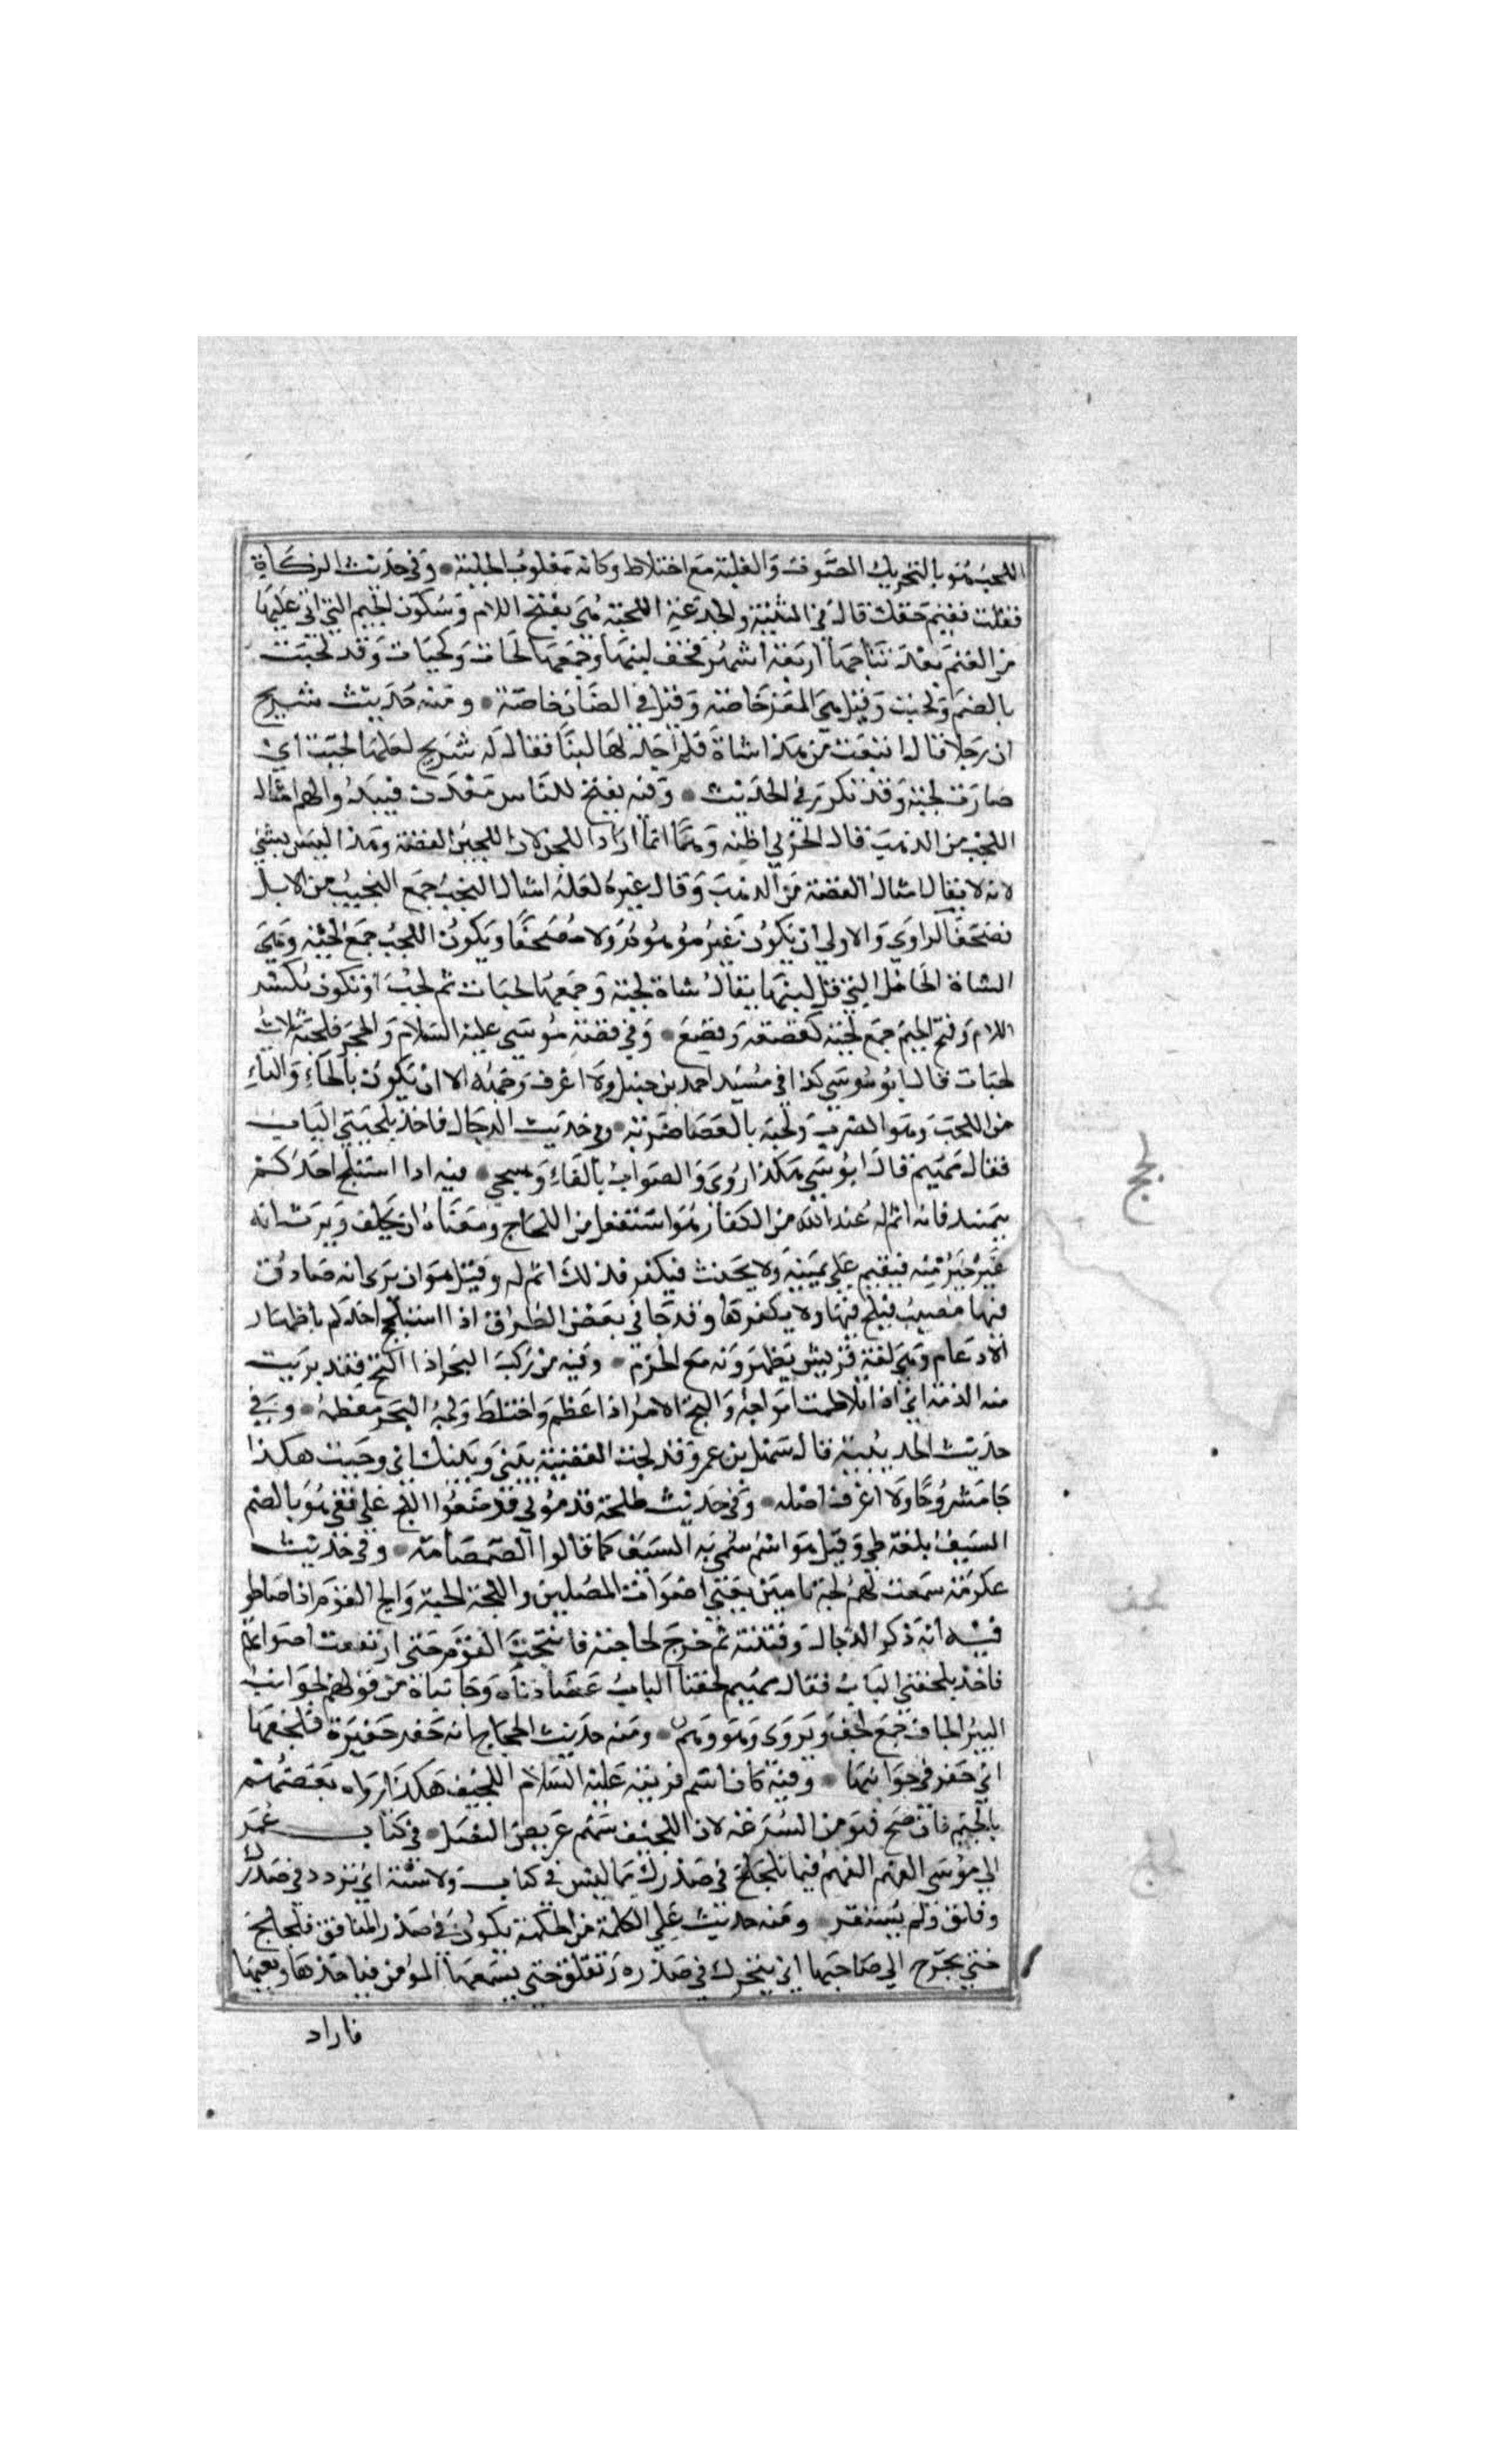 اللجب هو بالتحريك الصوت والغلبة مع اختلاط وكانه مقلوب الجلبة وفي حديث الزكاة
فقلت ففيم حقك قال في الثنية والجذعة اللجبة هي بفتح اللام وسكون الجيم التي اتى عليها
من الغنم بعد نتاجها اربعة اشهر فخف لبنها وجمعها لجاب ولجبات وقد لجبت
بالضم ولجبت وقيل هي المعز خاصة وقيل في الضان خاصة ومنه حديث شريح
ان رجلا قال ابتعت من هذا شاة فلم اجد لها لبنا فقال له شريح لعلها لجبت اي
صارت لجبة وقد تكرر في الحديث وفيه يفتح للناس معدن فيبدو لهم امثال
اللجب من الذهب قال الحربي اظنه وهما انما اراد اللجن لان اللجين الفضة وهذا ليس بشي
لانه لا يقال امثال الفضة من الذهب وقال غيره لعله امثال النجب جمع النجيب من الابل
فصحف الراوي والاولى ان يكون غير موهوم ولا مصحفا ويكون اللجب جمع لجبة وهي
الشاة الحامل التي قل لبنها يقال شاة لجبة وجمعها لجبات ثم لجب او تكون بكسر
اللام وفتح الجيم جمع لجبة كقصعة وقصع وفي قصة موسى عليه السلام والحجر فلجبه ثلاث
لجبات قال ابو موسى كذا في مسند احمد بن حنبل ولا اعرف وجهه الا ان يكون بالحاء والتاء
من اللحت وهو الضرب ولحته بالعصا ضربه وفي حديث الدجال فاخذ بلجبتي الباب
فقال مهيم قال ابو موسى هكذا روى والصواب بالفاء وسيجي فيه اذا استلج احدكم
بيمينه فانه اثم له عند الله من الكفارة هو استفعل من اللجاج ومعناه ان يحلف ويرى ان
غيره خير منه فيقيم على يمينه ولا يحنث فيكفر فذلك اثم له وقيل هو ان يرى انه صادق
فيها مصيب فيلج فيها ولا يكفرها وقد جا في بعض الطرق اذا استلجج احدكم باظهار
الادغام وهي لغة قريش يظهرونه مع الجزم وفيه من ركب البحر اذا التج فقد بريت
منه الذمة اي اذا تلاطمت امواجه والتج الامر اذا عظم واختلط ولجة البحر معظمه وفي
حديث الحديبية قال سهيل بن عمرو قد لجت القضية بيني وبينك اي وجبت هكذا
جا مشروحا ولا اعرف اصله وفي حديث طلحة قدموني فوضعوا اللج على قفي هو بالضم
السيف بلغة طي وقيل هو اسم سمي به السيف كما قالوا الصمصامة وفي حديث
عكرمة سمعت لهم لجة بامين يعني اصوات المصلين واللجة الجلبة والج القوم اذا صاحوا
فيه انه ذكر الدجال وفتنته ثم خرج لحاجته فانتحب القوم حتى ارتفعت اصواتهم
فاخذ بلجفتي الباب فقال مهيم لجفتا الباب عضادتاه وجانباه من قولهم لجوانب
البير الجاف جمع لجف ويروى وهو وهم ومنه حديث الحجاج انه حفر حفيرة فلجفها
اي حفر في جوانبها وفيه كان اسم فرسه عليه السلام اللجيف هكذا رواه بعضهم
بالجيم فان صح فهو من السرعة لان اللجيف سهم عريض النصل في كتاب عمر
الى موسى الفهم الفهم فيما تلجلج في صدرك مما ليس في كتاب ولا سنة اي تردد في صدرك
وقلق ولم يستقر ومنه حديث علي الكلمة من الحكمة تكون في صدر المنافق فلجلج
حتى تخرج الى صاحبها اي يتحرك في صدره وتقلق حتى يسمعها المؤمن فياخذها ويعيها
فاراد
لجج
لجف
لجلج